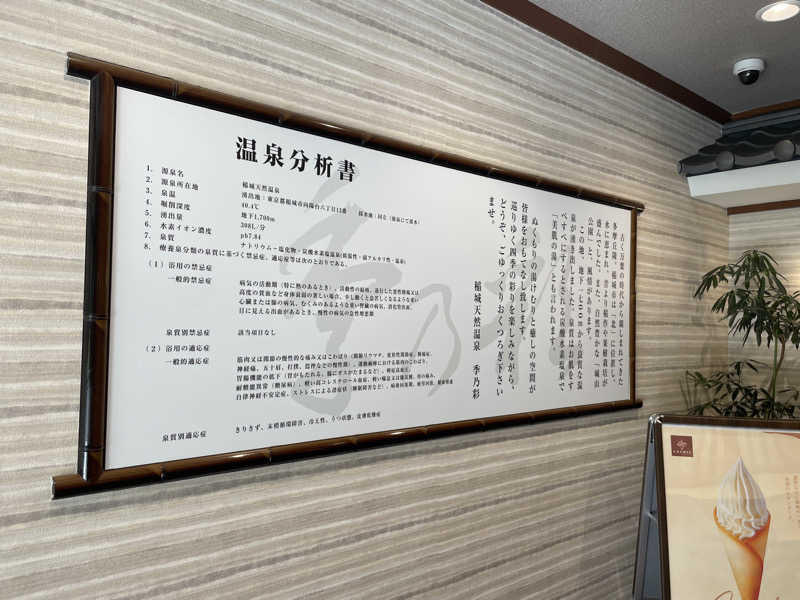 温泉分析書
1. 源泉名 稲城天然温泉
2. 源泉所在地 湧出地：東京都稲城市向陽台六丁目13番 採水地：同左（源泉にて採水）
3. 泉温 40.4℃
4. 掘削深度 地下1,700m
5. 湧出量 308L/分
6. 水素イオン濃度 ph7.84
7. 泉質 ナトリウム－塩化物・炭酸水素塩温泉(低張性・弱アルカリ性・温泉)
8. 療養泉分類の泉質に基づく禁忌症、適応症等は次のとおりである。
（1）浴用の禁忌症
一般的禁忌症 病気の活動期（特に熱のあるとき）、活動性の結核、進行した悪性腫瘍又は
高度の貧血など身体衰弱の著しい場合、少し動くと息苦しくなるような重い
心臓または肺の病気、むくみのあるような重い腎臓の病気、消化管出血、
目に見える出血があるとき、慢性の病気の急性増悪期
泉質別禁忌症 該当項目なし
（2）浴用の適応症
一般的適応症 筋肉又は関節の慢性的な痛み又はこわばり（関節リウマチ、変形性関節症、腰痛症、
神経痛、五十肩、打撲、捻挫などの慢性期）、運動麻痺における筋肉のこわばり、
胃腸機能の低下（胃がもたれる、腸にガスがたまるなど）、軽症高血圧、
耐糖能異常（糖尿病）、軽い高コレステロール血症、軽い喘息又は肺気腫、痔の痛み、
自律神経不安定症、ストレスによる諸症状（睡眠障害など）、病後回復期、疲労回復、健康増進
泉質別適応症 きりきず、末梢循環障害、冷え性、うつ状態、皮膚乾燥症
古く万葉の時代から親しまれてきた
多摩丘陵。稲城市は「北」に位置し、
水に恵まれ、昔より稲作や果樹栽培が
盛んでした。また、自然豊かな「城山
公園」と、風情があります。
この地、地下一七〇〇mから良質な温
泉が湧き出しました。泉質はお肌をす
べすべにするとされる炭酸水素塩泉で
「美肌の湯」とも言われます。
ぬくもりの湯けむりと癒しの空間が
皆様をおもてなし致します。
巡りゆく四季の彩りを楽しみながら、
どうぞ、ごゆっくりおくつろぎ下さい
ませ。
稲城天然温泉 季乃彩